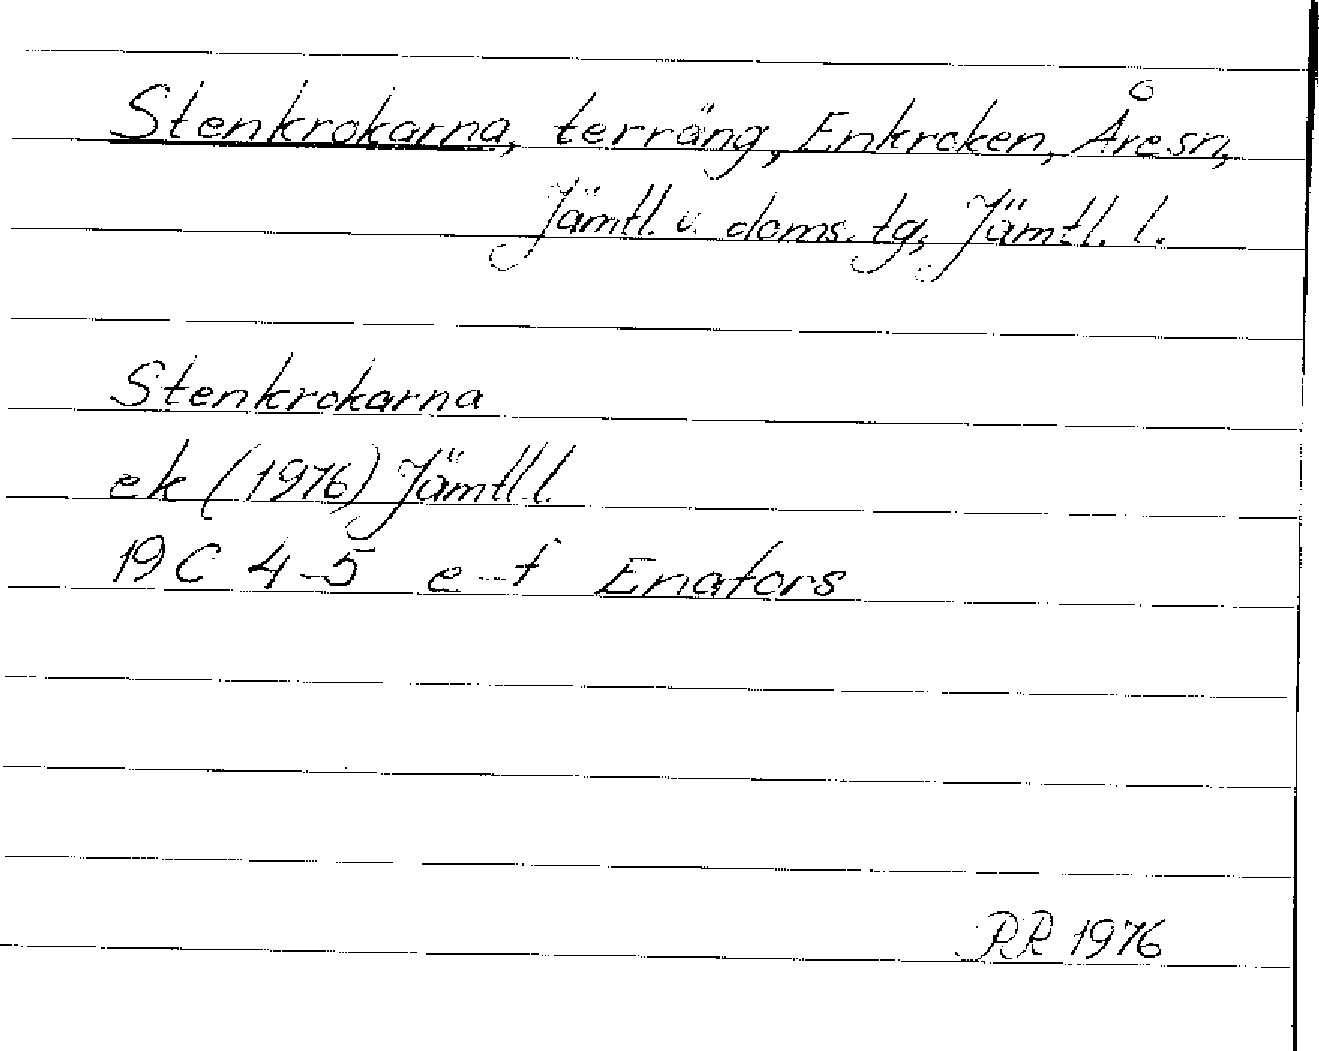 Stenkrokarna, terräng, Enkroken, Åre sn,
Jämtl. v. doms. tg, Jämtl. l.
Stenkrokarna
ek (1976) Jämtl. l.
19 C 4-5 e-f Enafors
RR 1976